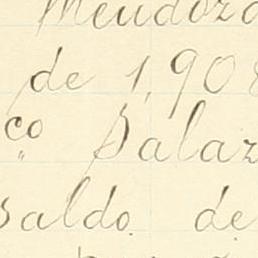 Mendoza
de 1,908
co Salaz
saldo de